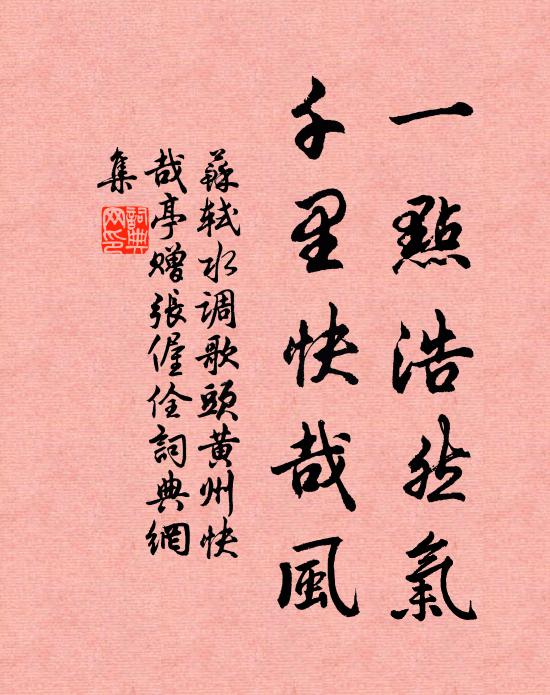 一點浩然氣
千里快哉風
蘇軾水调歌頭黄州快
哉亭贈張偓佺詞典網
集
詞典
网印